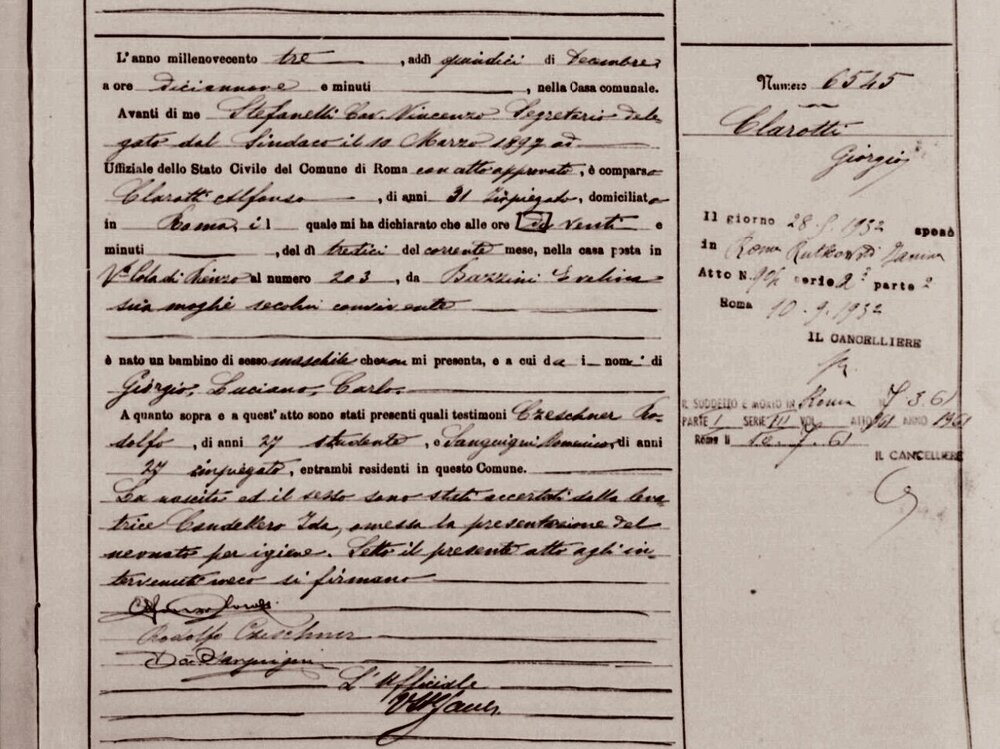 L'anno millenovecento tre, addì quindici di Decembre,
a ore diciannove e minuti, nella Casa comunale.
Avanti di me Stefanelli Cav. Vincenzo Segretario dele-
gato dal Sindaco il 10 Marzo 1897 ad
Uffiziale dello Stato Civile del Comune di Roma con atto approvato, è comparso
Clarotti Alfonso, di anni 31 Impiegato, domiciliato
in Roma, il quale mi ha dichiarato che alle ore venti e
minuti, del dì tredici del corrente mese, nella casa posta in
Via Cola di Rienzo al numero 203, da Bazzini Evelina
sua moglie secolui convivente
è nato un bambino di sesso maschile che non mi presenta, e a cui da i nomi di
Giorgio, Luciano, Carlo.
A quanto sopra e a quest'atto sono stati presenti quali testimoni Czeschner Ro-
dolfo, di anni 27 studente, e Sanguigni Domenico, di anni
27 impiegato, entrambi residenti in questo Comune.
La nascita ed il sesso sono stati accertati dalla leva-
trice Candellero Ida, omessa la presentazione del
neonato per igiene. Letto il presente atto agli in-
tervenuti meco si firmano
Rodolfo Czeschner
L'Uffiziale
Numero 6545
Clarotti
Giorgio
Il giorno 28-8-1932 sposò
in Roma Rutkowski
Atto N. serie 2ª parte 2
Roma 10-9-1932
IL CANCELLIERE
IL SUDDETTO E MORTO IN Roma 7 3 61
PARTE I SERIE III VOL. ATTO ANNO 1961
Roma li 10-7-61
IL CANCELLIERE